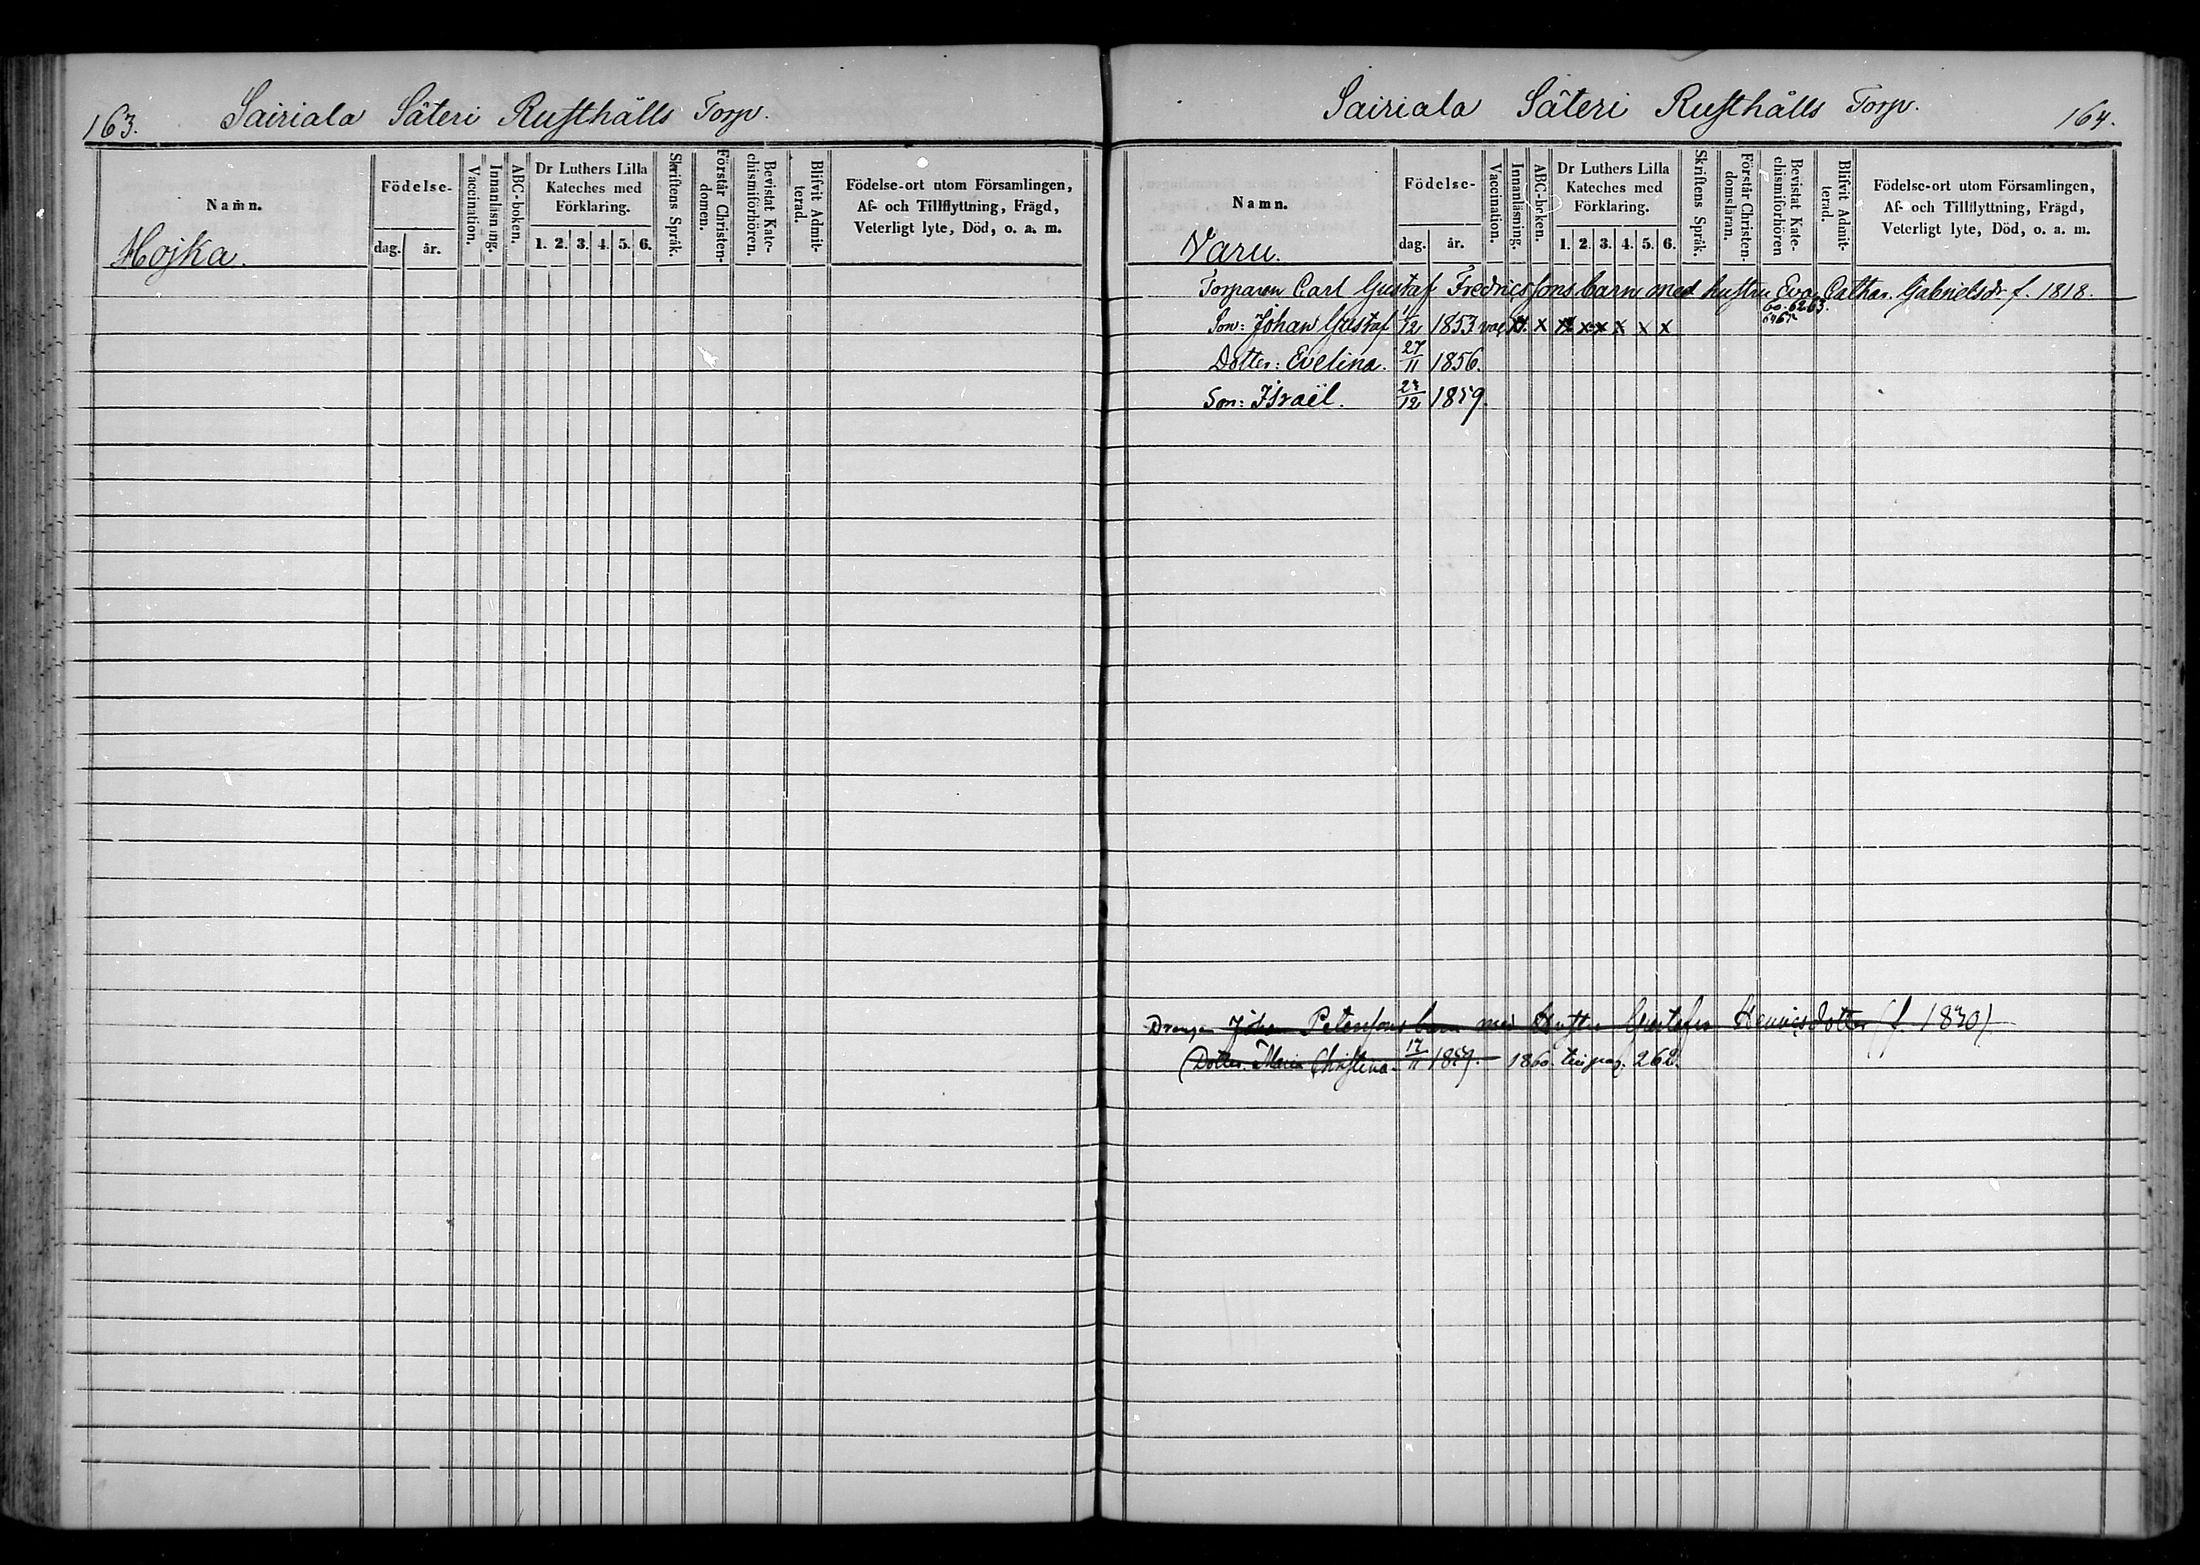 163. Sairiala Säteri Rusthålls Torp.
Namn.
Födelse-
dag. år.
Vaccination.
Innanläsning.
ABC-boken.
Dr Luthers Lilla
Kateches med
Förklaring.
1. 2. 3. 4. 5. 6.
Skriftens Språk.
Förstår Christen-
domen.
Bevistat Kate-
chismiförhören
Blifvit Admit-
terad.
Födelse-ort utom Församlingen,
Af- och Tillflyttning, Frägd,
Veterligt lyte, Död, o. a. m.
Hojka.
Sairiala Säteri Rusthålls Torp. 164.
Namn.
Födelse-
dag. år.
Vaccination.
Innanläsning.
ABC-boken.
Dr Luthers Lilla
Kateches med
Förklaring.
1. 2. 3. 4. 5. 6.
Skriftens Språk.
Förstår Christen-
domsläran.
Bevistat Kate-
chismiförhören
Blifvit Admit-
terad.
Födelse-ort utom Församlingen,
Af- och Tillflyttning, Frägd,
Veterligt lyte, Död, o. a. m.
Varu.
Torparen Carl Gustaf Fredricssons barn med hustru Eva Cathar. Gabrielsdr f. 1818.
Son: Johan Gustaf 1/12 1853 vac x x x x x x x 60. 62 63.
64 65
Dotter: Evelina. 27/11 1856.
Son: Israël. 23/12 1859.
Drengen Johan Peterssons barn med Hustru Gustafva Henricsdotter (f. 1830)
(Dotter Maria Christina 17/11 1859. 1860. till pag. 262.